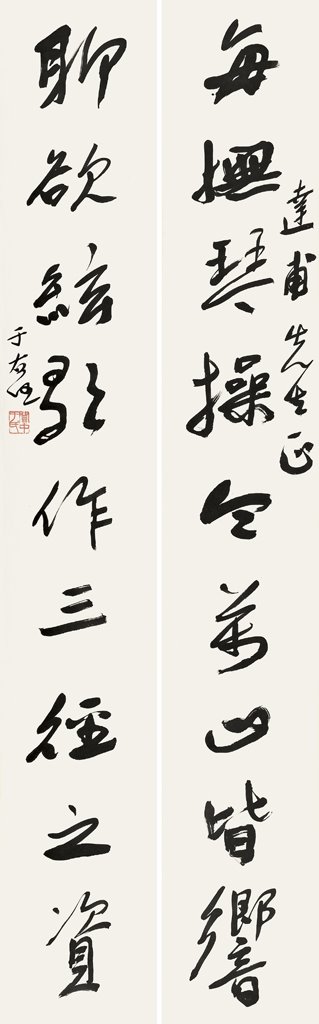 達甫先生正
每撫琴操令萬山皆響
聊欲絃歌作三徑之資
于右任
關中于氏